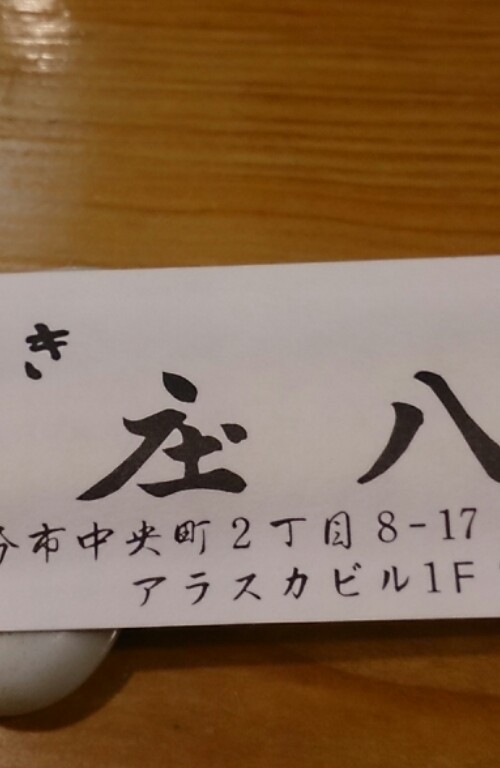 き
庄八
分市中央町2丁目8-17
アラスカビル1F